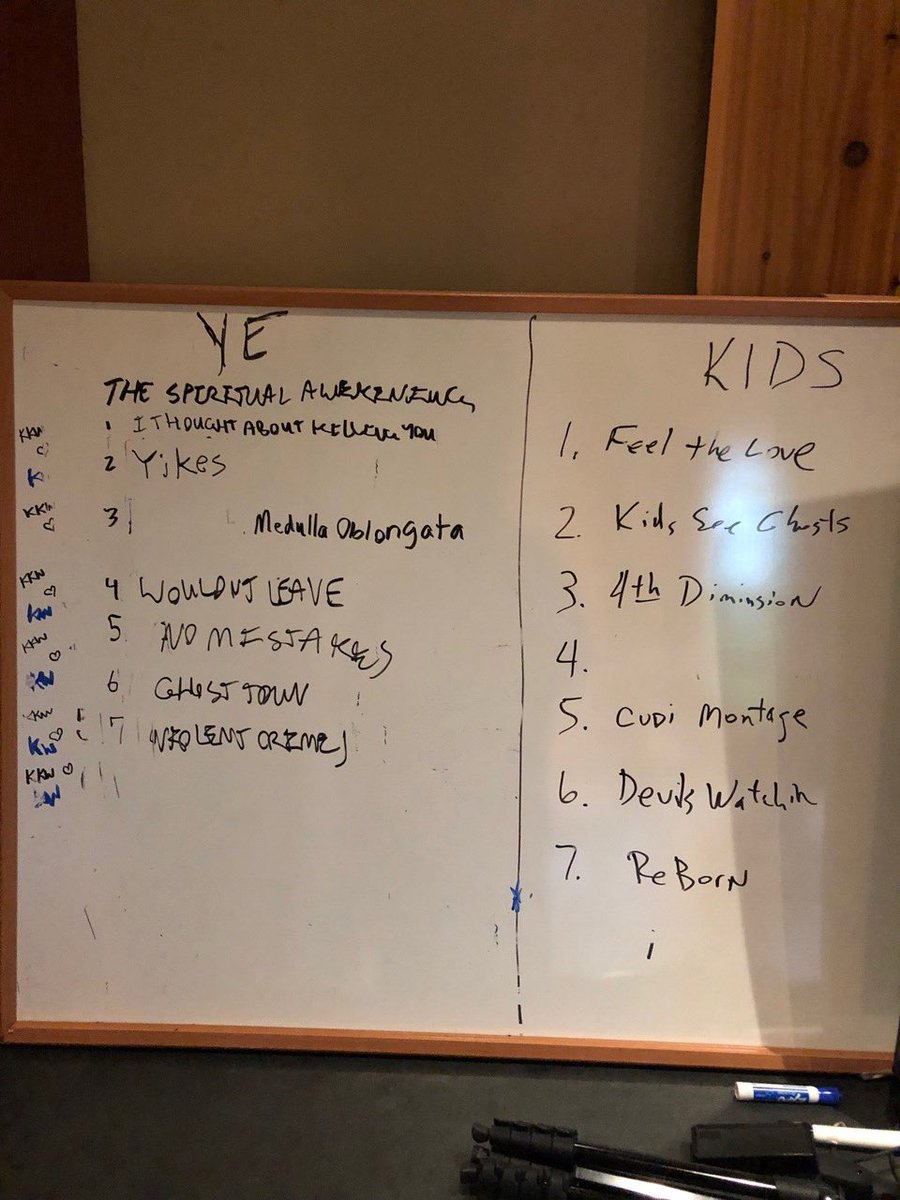 YE
THE SPIRITUAL AWEKENING
1 I THOUGHT ABOUT KILLING YOU
2 Yikes
3 Medulla Oblongata
4 WOULDNT LEAVE
5 NO MISTAKES
6 GHOST TOWN
7 VIOLENT CRIMES
KKW
KKW
KKW
KKW
KKW
KKW
KIDS
1. Feel the Love
2. Kids See Ghosts
3. 4th Diminsion
4.
5. CUDI Montage
6. Devils Watchin
7. ReBorn